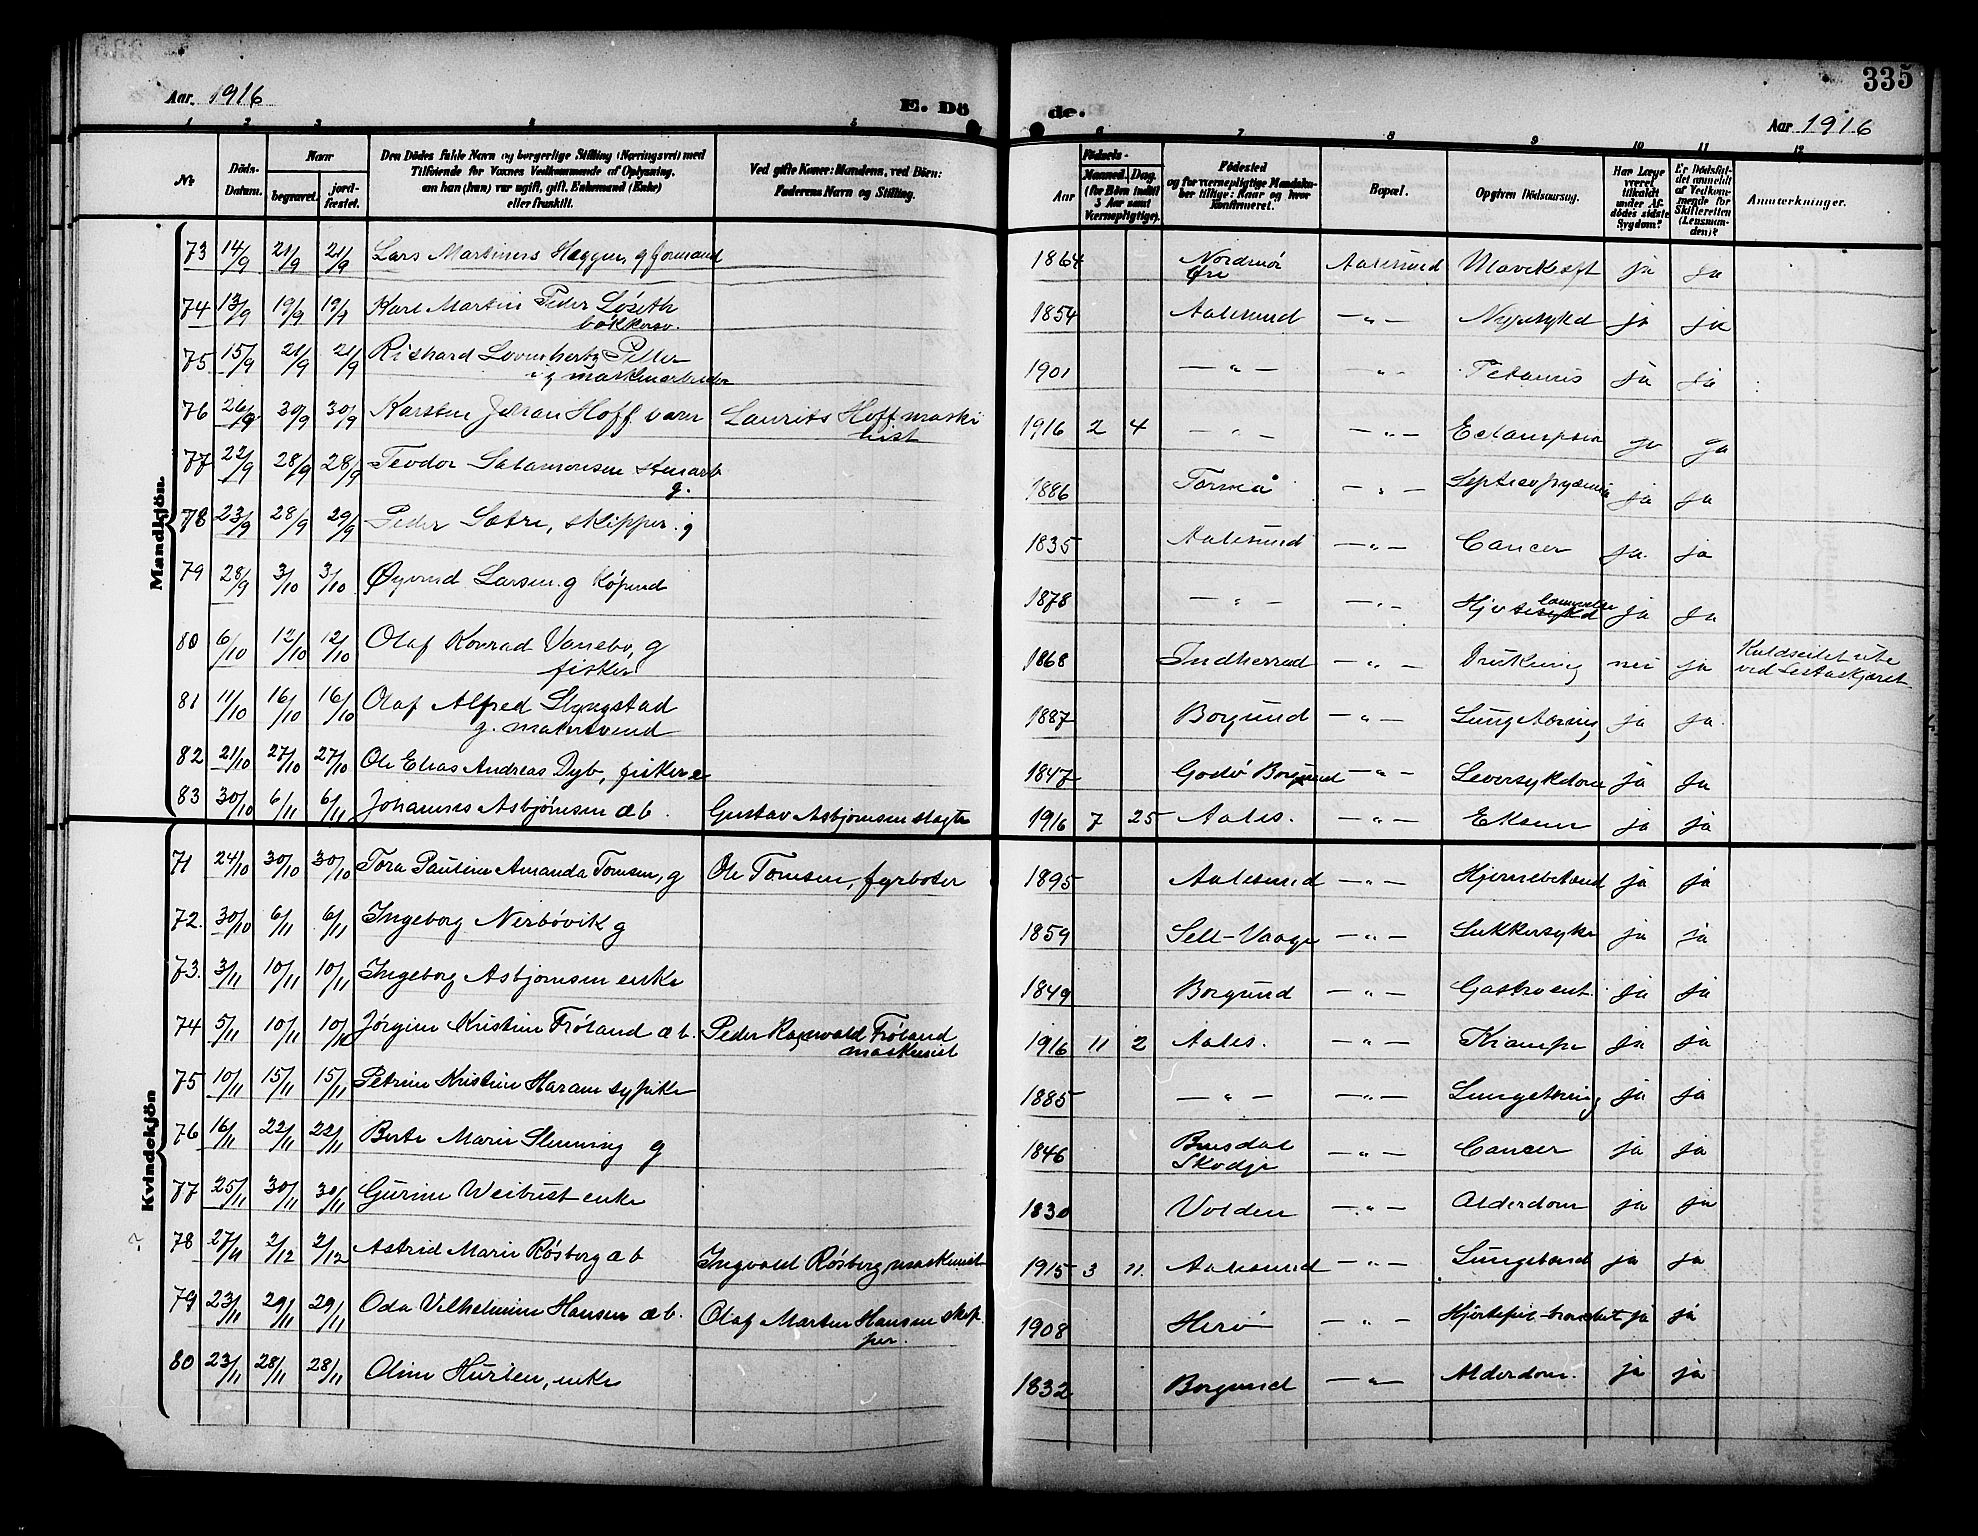 335
Aar 1916
E. Döde.
Aar 1916
1 2 3 4 5 6 7 8 9 10 11 12
No
Döds-Datum.
Naar
begravet.
jord-fæstet.
Den Dödes fulde Navn og borgerlige Stilling (Næringsvei) med
Tilföiende for Voxnes Vedkommende af Oplysning,
om han (hun) var ugift, gift, Enkemand (Enke)
eller fraskilt.
Ved gifte Koner: Mandens, ved Börn:
Faderens Navn og Stilling.
Födsels-
Aar
Maaned. Dag.
(for Börn indtil
3 Aar samt
Værnepligtige).
Födested
og for værnepligtige Mandskaber tillige: Naar og hvor
konfirmeret.
Bopæl.
Opgiven Dödsaarsag.
Har Læge
været
tilkaldt
under Afdödes sidste
Sygdom?
Er Dödsfaldet anmeldt
af Vedkommende for
Skifteretten
(Lensmanden)?
Anmærkninger.
Mandkjön.
73 14/9 21/9 21/9 Lars Martinus Hæggen, g formand 1864 Nordmør Øre Aalesund Mavekræft ja ja
74 13/9 19/9 19/9 Karl Martin Peder Løseth 1854 Aalesund —"— Nyresykd ja ja
bøkkersv.
75 15/9 21/9 21/9 Rishard 1901 —"— —"— Tetanus ja ja
76 26/9 30/9 30/9 Karsten Johan Hoff barn Laurits Hoff maskinist 1916 2 4 —"— —"— Eclampsia ja ja
77 22/9 28/9 28/9 Teodor Salamonsen stenarb g. 1886 —"— ja ja
78 23/9 28/9 29/9 Peder Sætre, skipper. g 1835 Aalesund —"— Cancer ja ja
79 28/9 3/10 3/10 Øyvind Larsen g køpmd 1878 —"— —"— ja ja
80 6/10 12/10 12/10 Olaf Konrad Vannebo, g 1868 Indherred —"— Drukning nei ja Kuldseilet ute
fisker ved
81 11/10 16/10 16/10 Olaf Alfred Slyngstad 1887 Borgund —"— Lungetæring ja ja
g. malersvend
82 21/10 27/10 27/10 Ole Elias Andreas Dyb, fisker e 1847 Godø Borgund —"— Leversykdom ja ja
83 30/10 6/11 6/11 Johannes Asbjørnsen æ b. Gustav Asbjørnsen slagter 1916 7 25 Aales. —"— Eksem ja ja
Kvindekjön
71 24/10 30/10 30/10 Tora Pauline Amanda Tomsen, g Ole Tomsen, fyrbøter 1895 Aalesund —"— Hjernebetænd ja ja
72. 30/10 6/11 6/11 Ingeborg Nerbøvik g 1859 Selje-Vaags —"— Sukkersyke ja ja
73. 3/11 10/11 10/11 Ingeborg Asbjørnsen enke 1849 Borgund —"— Gastroent. ja ja
74 5/11 10/11 10/11 Jørgine Kristine Frøland æ b. Peder Ragnvald Frøland 1916 11 2 Aales. —"— Krampe ja ja
maskinist
75 10/11 15/11 15/11 Petrine Kristine Haram sypike 1885 —"— —"— Lungetæring ja ja
76 16/11 22/11 22/11 Berte Marie Slenning g 1846 Brusdal Skodje —"— Cancer ja ja
77 25/11 30/11 30/11 Gurine Weibust enke 1830 Volden —"— Alderdom ja ja
78 27/11 2/12 2/12 Astrid Marie Røsberg æ b Ingvald Røsberg, maskinist 1915 3 11. Aalesund —"— Lungebetænd ja ja
79 23/11 29/11 29/11 Oda Vilhelmine Hansen æ b. Olaf Martin Hansen skip 1908 Herø —"— ja ja
per.
80 23/11 28/11 28/11 Oline Hurlen, enke 1832 Borgund —"— Alderdom. ja ja